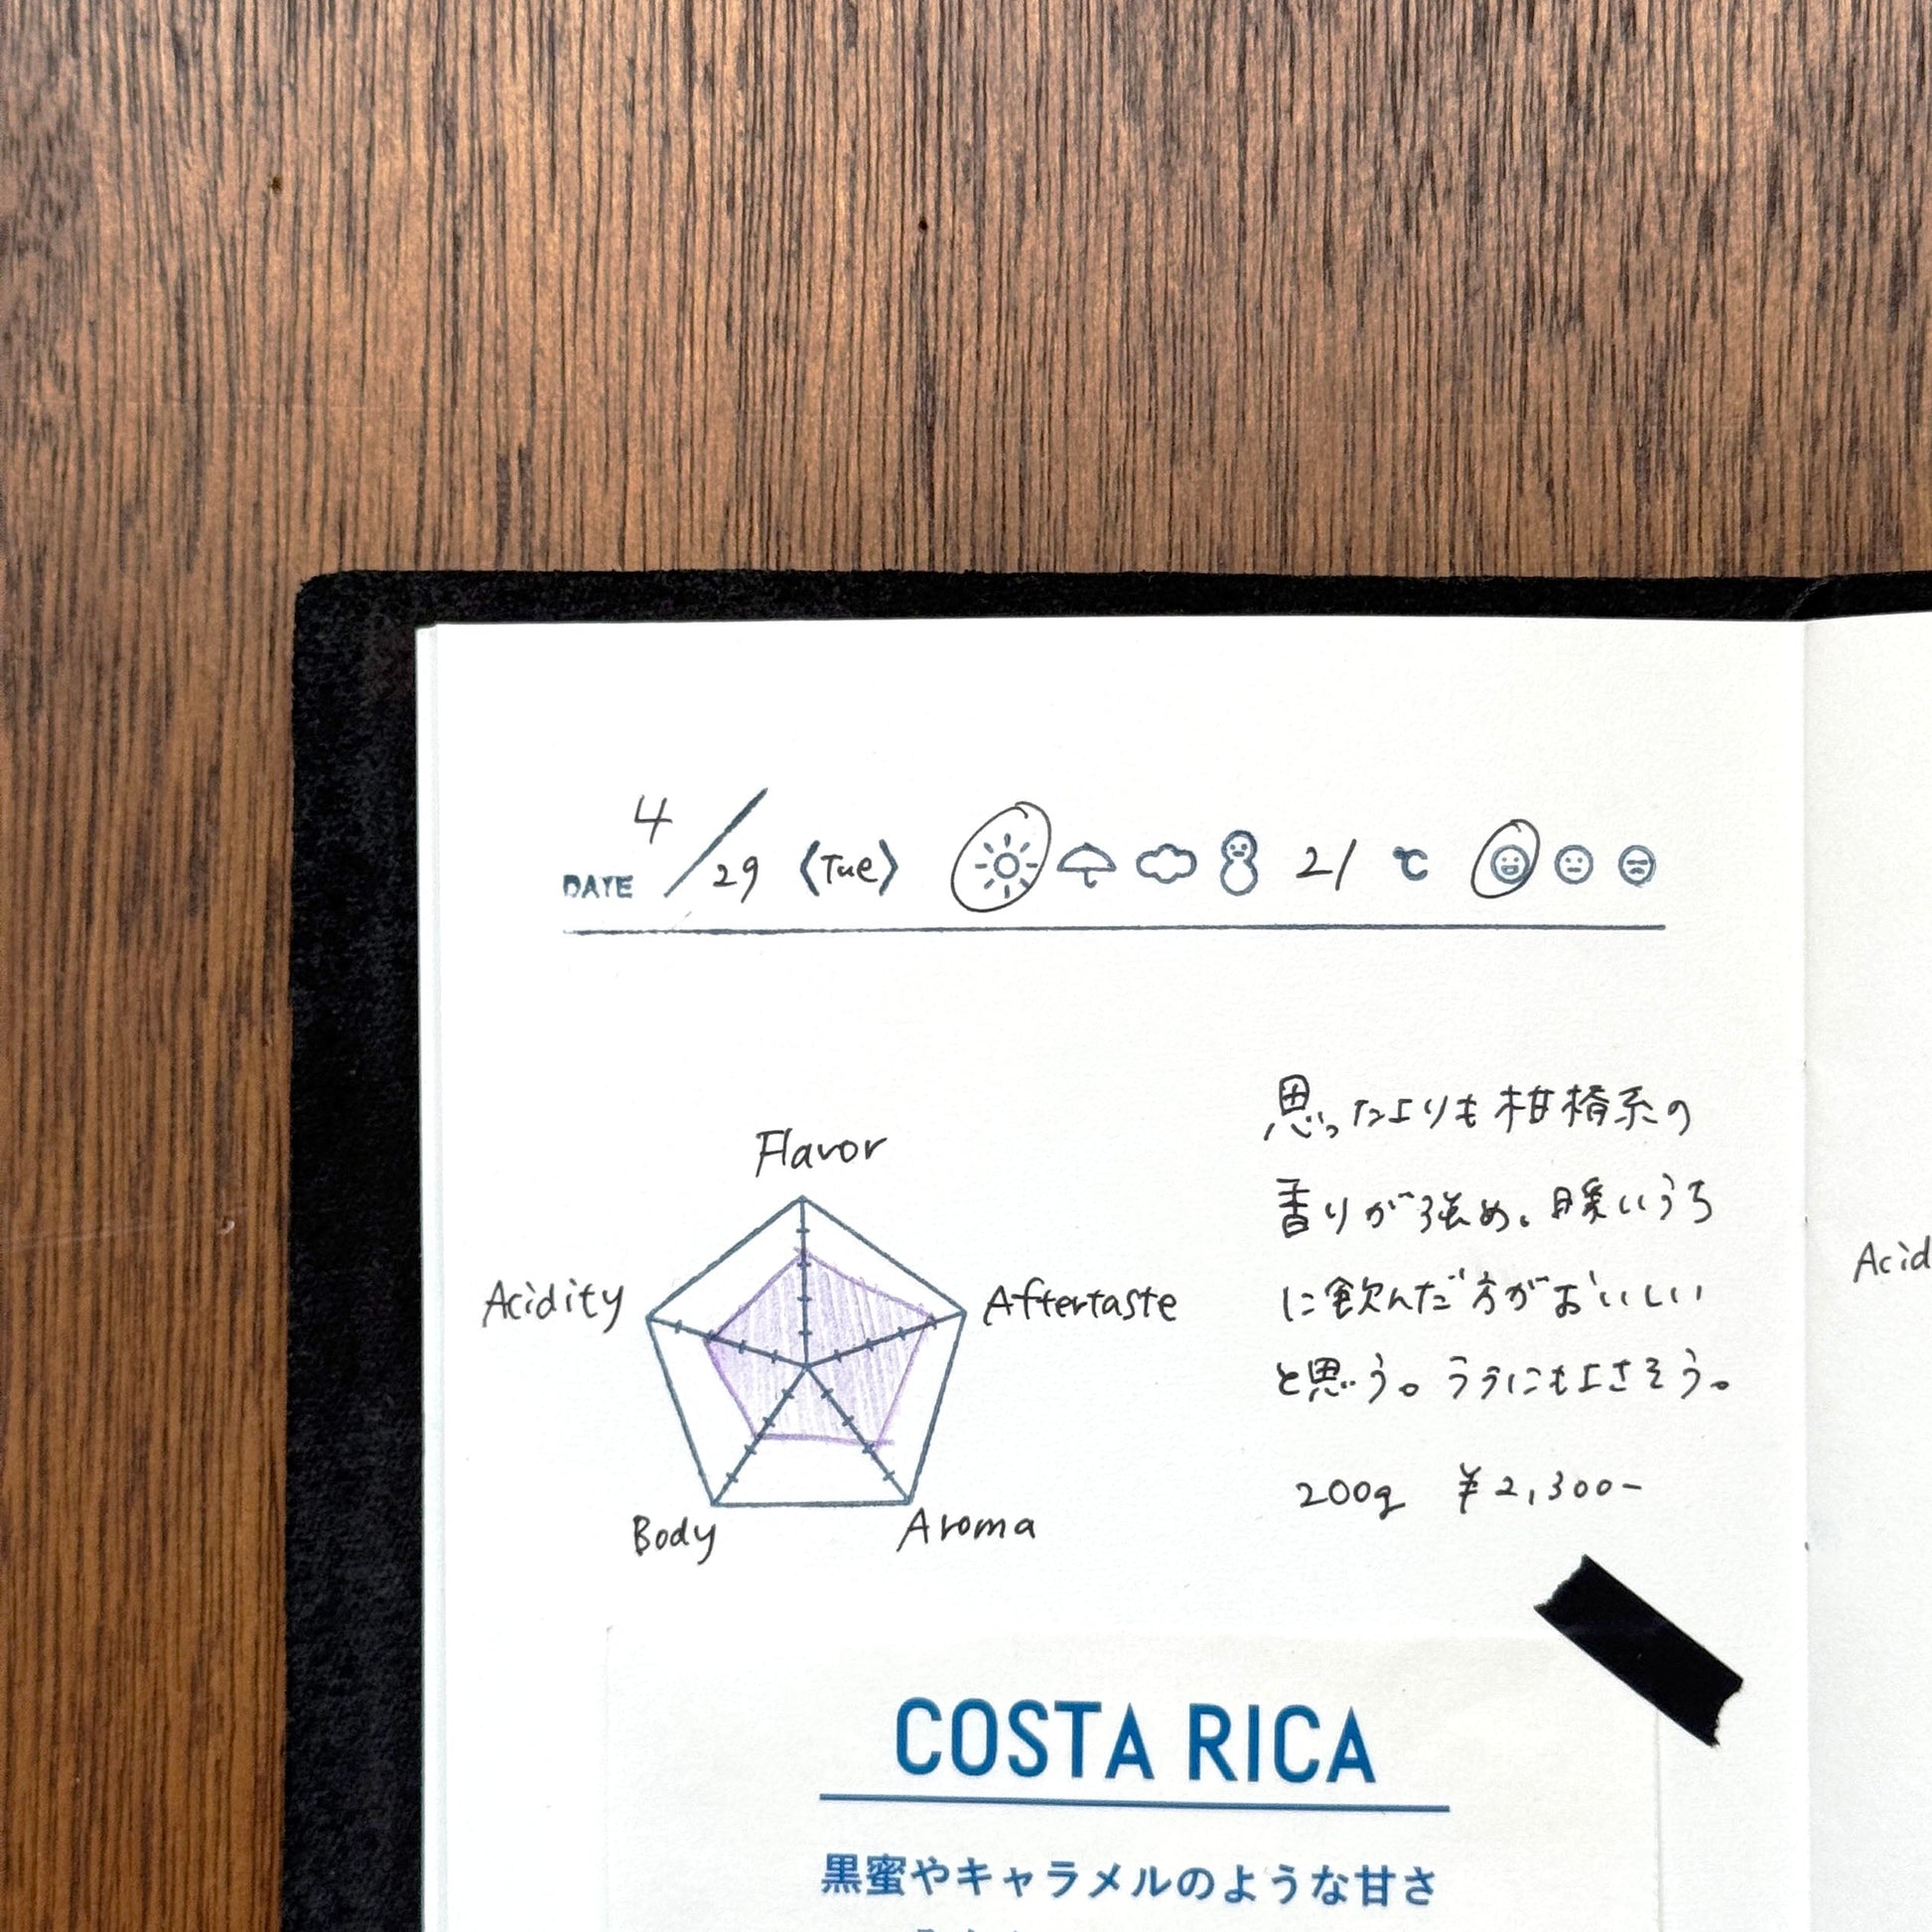 DATE 4/29 〈Tue〉 21 ℃
Flavor
Acidity
Aftertaste
Body
Aroma
思ったよりも柑橘系の
香りが強め。暖いうち
に飲んだ方がおいしい
と思う。ラテにもよさそう。
200g ¥2,300-
COSTA RICA
黒蜜やキャラメルのような甘さ
Acid